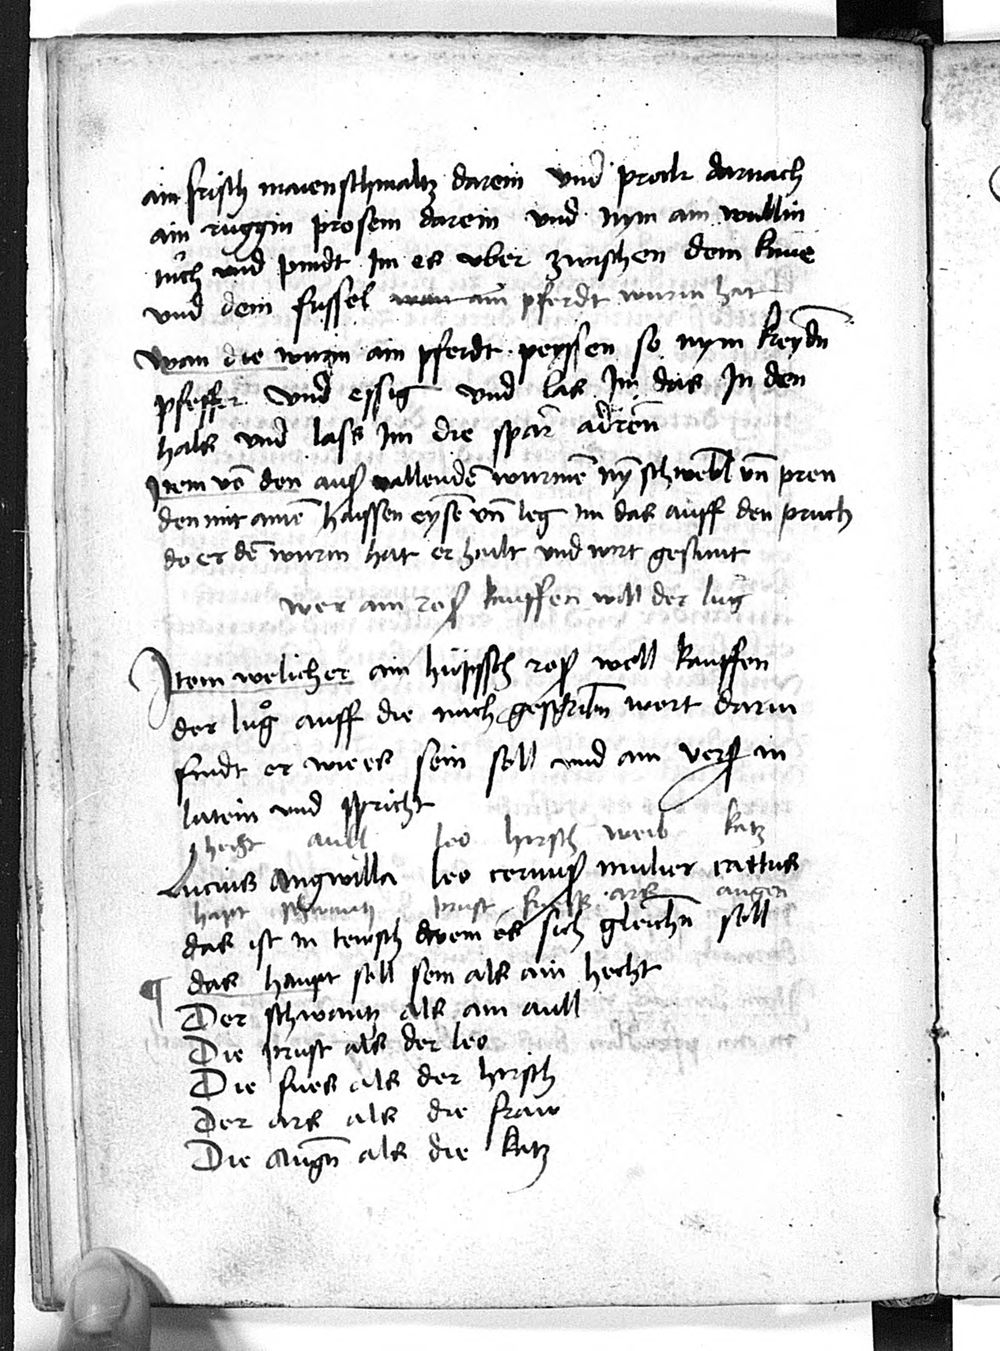 ain frisch mawenschmaltz darein und prock darnach
ain ruggin prosem darein und nym ain wullin
tuch und pindt Im es uber zwischen dem knie
und dem fussel wan ain pferdt wurm hat
Wan die wurm ain pferdt peyssen so nym kreydn
pfeffer und essig und las Im das In den
hals und lass Im die spar adren
Item võ den aufwallendē wurmē ny̅ schwebl vn̅ pren
den mit ainē haissen eysē vn̅ leg im das auff den pruch
do er dē wurm hat er hailt und wirt gesunt
wer ain ros kauffen will der lug
Item welicher ain hupsch ros well kauffen
der lug auff die nach geschribn wort darin
findt er wie es sein soll und ain vers in
latein und spricht
hecht aull leo hirsch weib katz
Lucius Angwilla leo cervus mulier cattus
hapt schwantz prust fues ars augen
das ist in tewsch darein es sich gleichn soll
das haupt soll sein als ain hecht
Der schwantz als ain aull
Die prust als der leo
Die fues als der hirsch
Der ars als die fraw
Die augn als die katz